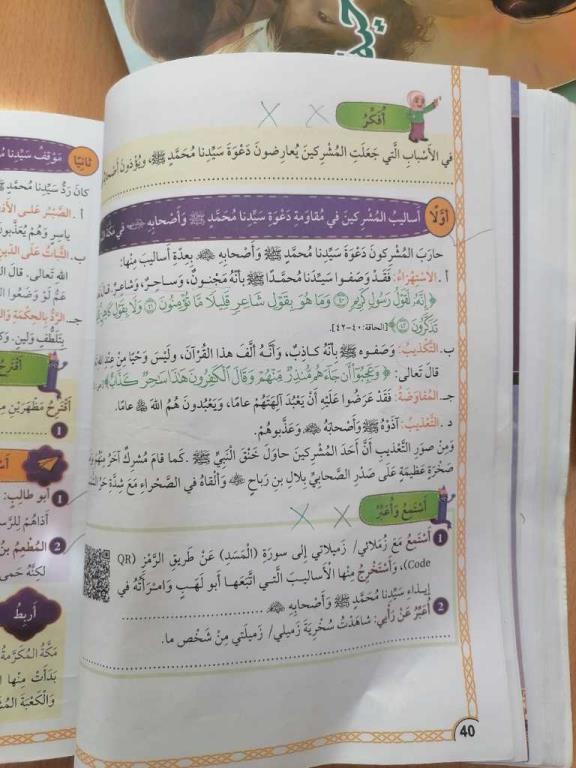 أُفَكِّرُ
في الأَسْبابِ الَّتي جَعَلَتِ المُشْرِكينَ يُعارِضونَ دَعْوَةَ سَيِّدِنا مُحَمَّدٍ ﷺ، ويُؤْذونَ
أَوَّلًا أساليبُ المُشْرِكينَ في مُقاوَمَةِ دَعْوَةِ سَيِّدِنا مُحَمَّدٍ ﷺ وَأَصْحابِهِ في
حارَبَ المُشْرِكونَ دَعْوَةَ سَيِّدِنا مُحَمَّدٍ ﷺ وَأَصْحابِهِ بِعِدَّةِ أَساليبَ مِنْها:
أ . الِاسْتِهْزاءُ: فَقَدْ وَصَفوا سَيِّدَنا مُحَمَّدًا ﷺ بِأَنَّهُ مَجْنونٌ، وَساحِرٌ، وَشاعِرٌ.
﴿إِنَّهُ لَقَوْلُ رَسُولٍ كَرِيمٍ ۝٤٠ وَمَا هُوَ بِقَوْلِ شَاعِرٍ قَلِيلًا مَّا تُؤْمِنُونَ ۝٤١ وَلَا بِقَوْلِ
تَذَكَّرُونَ ۝٤٢﴾ [الحاقة: ٤٠-٤٢].
ب. التَّكْذيبُ: وَصَفوه بِأَنَّهُ كاذِبٌ، وَأَنَّهُ أَلَّفَ هذا القُرْآنَ، وَلَيْسَ وَحْيًا مِنْ عِنْدِ
قالَ تَعالى: ﴿وَعَجِبُوٓا أَن جَآءَهُم مُّنذِرٌ مِّنْهُمْ وَقَالَ ٱلْكَٰفِرُونَ هَٰذَا سَٰحِرٌ كَذَّابٌ﴾
جـ. المُفاوَضَةُ: فَقَدْ عَرَضُوا عَلَيْهِ أَنْ يَعْبُدَ آلِهَتَهُمْ عامًا، وَيَعْبُدونَ هُمُ اللهَ ﷻ عامًا.
د . التَّعْذيبُ: آذَوْهُ ﷺ وَأَصْحابَهُ وَعَذَّبوهُمْ.
وَمِنْ صوَرِ التَّعْذيبِ أَنَّ أَحَدَ المُشْرِكينَ حاوَلَ خَنْقَ النَّبِيِّ ﷺ. كَما قامَ مُشْرِكٌ آخَرُ
صَخْرَةٍ عَظيمَةٍ عَلى صَدْرِ الصَّحابِيِّ بِلالِ بنِ رَباحٍ وَأَلْقاهُ في الصَّحْراءِ مَعَ شِدَّةِ
أَسْتَمِعُ وَأُعَبِّرُ
1 أَسْتَمِعُ مَعَ زُمَلائي/ زَميلاتي إِلى سورَةِ (المَسَدِ) عَنْ طَريقِ الرَّمْزِ (QR
Code)، وَأَسْتَخْرِجُ مِنْها الأَساليبَ الَّتي اتَّبَعَها أَبو لَهَبٍ وَامْرَأَتُهُ في
إيذاءِ سَيِّدِنا مُحَمَّدٍ ﷺ وَأَصْحابِهِ
2 أُعَبِّرُ عَنْ رَأْيي: شاهَدْتُ سُخْرِيَةَ زَميلي/ زَميلَتي مِنْ شَخْصٍ ما.
40
ثانِيًا مَوْقِفُ سَيِّدِنا
كانَ رَدُّ سَيِّدِنا مُحَمَّدٍ
أ . الصَّبْرُ عَلى
ياسِرٍ وَهُمْ
ب. الثَّباتُ عَلى
اللهُ تَعالى. قالَ
عَمِّ لَوْ وَضَعوا
جـ. الرَّدُّ بِالحِكْمَةِ
بِتَلَطُّفٍ وَلينٍ.
أَقْتَرِحُ
أَقْتَرِحُ مَظْهَرَيْنِ
1
1 أَبو طالِبٍ:
أَذاهُمْ
2 المُطْعِمُ بنُ
لَكِنَّهُ حَمى
أَرْبِطُ
مَكَّةُ المُكَرَّمَةُ
بَدَأَتْ مِنْها
وَالكَعْبَةَ